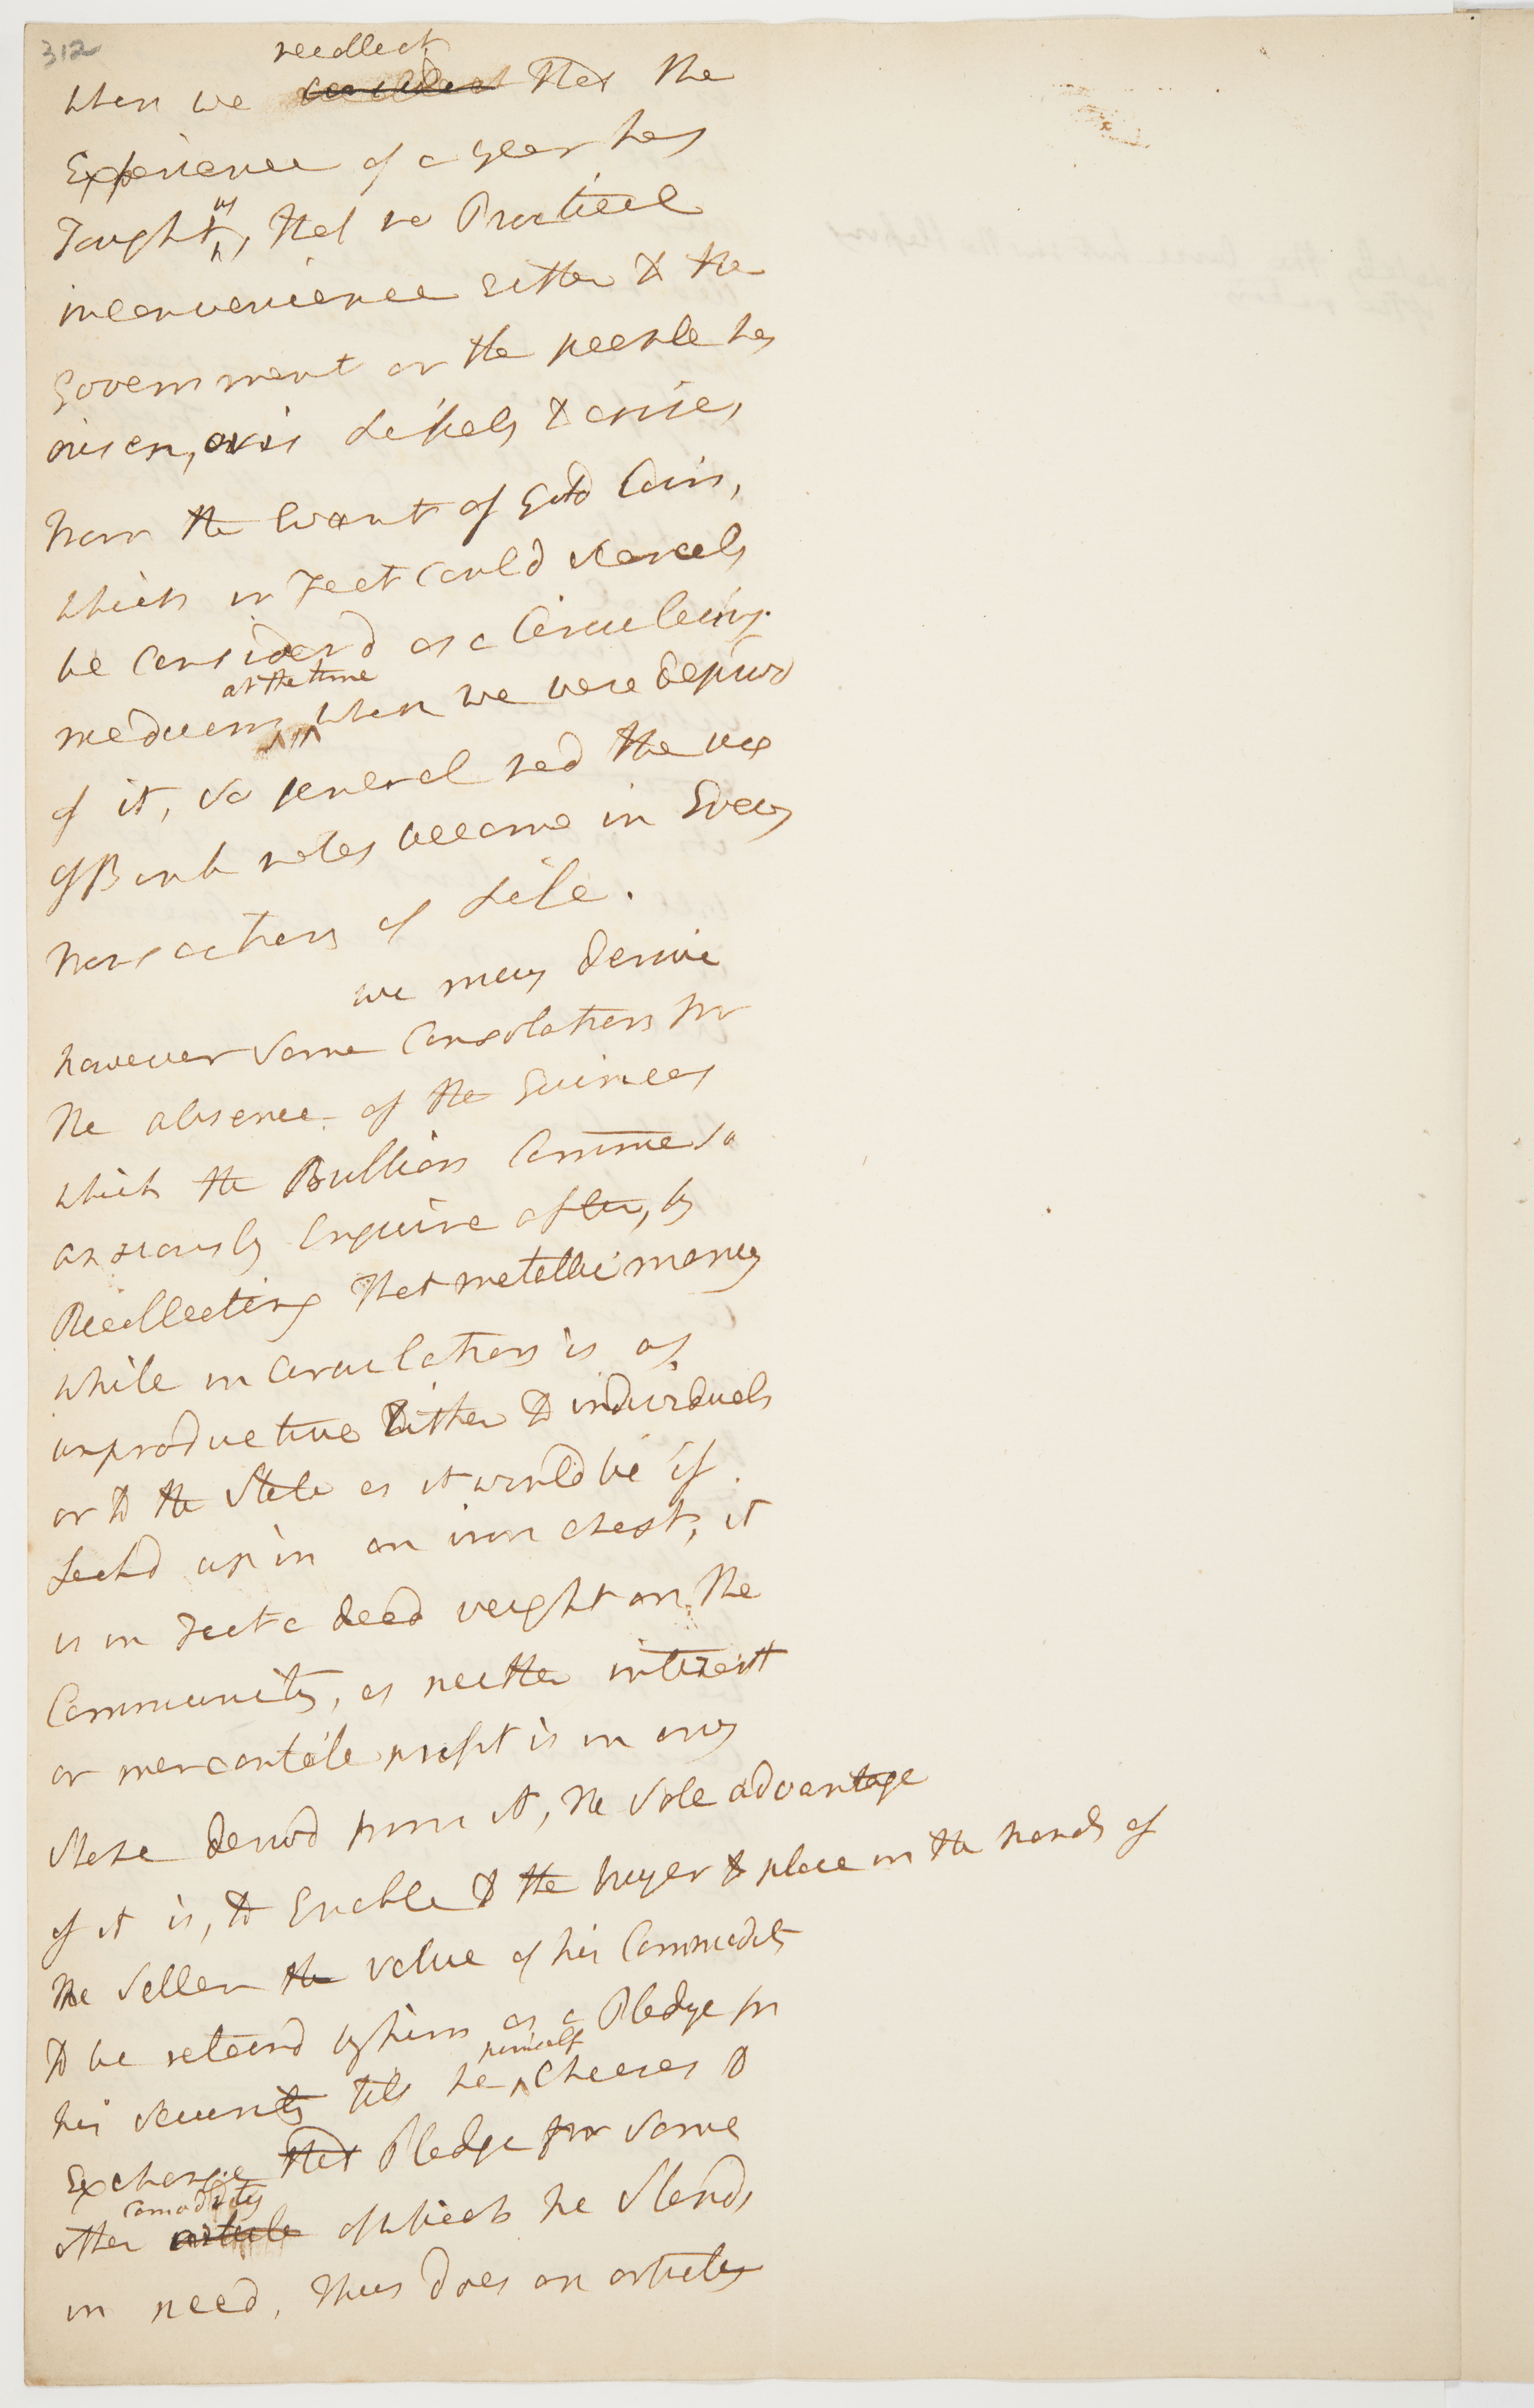 312
recollect
when we consider that the
Experience of a year has
Taught us, that no Practical
inconvenience Either to the
Government or the people has
arisen, or is Likely to arise,
from the want of Gold Coin,
which in Fact Could scarcely
be Considerd as a Circulating
at the time
medium, when we were deprivd
of it, so general had the use
of Bank notes become in Every
transactions of Life.
we may derive
however some Consolation for
the absence of the Guineas
which the Bullion Comme so
anxiously Enquire after, by
Recollecting that metallic money
while in Circulation is as
unproductive Either to individuals
or to the State as it would be if
Lockd up in an iron chest, it
is in Fact a dead weight on the
Community, as neither interest
or mercantile profit is in any
shape derivd from it, the sole advantage
of it is, to Enable to the buyer to place in the hands of
the seller the value of his Commodity
to be retaind by him as a Pledge for
himself
his security till he Chooses to
Exchange that Pledge for some
comodity
other article of which he stands
in need, Thus does an article